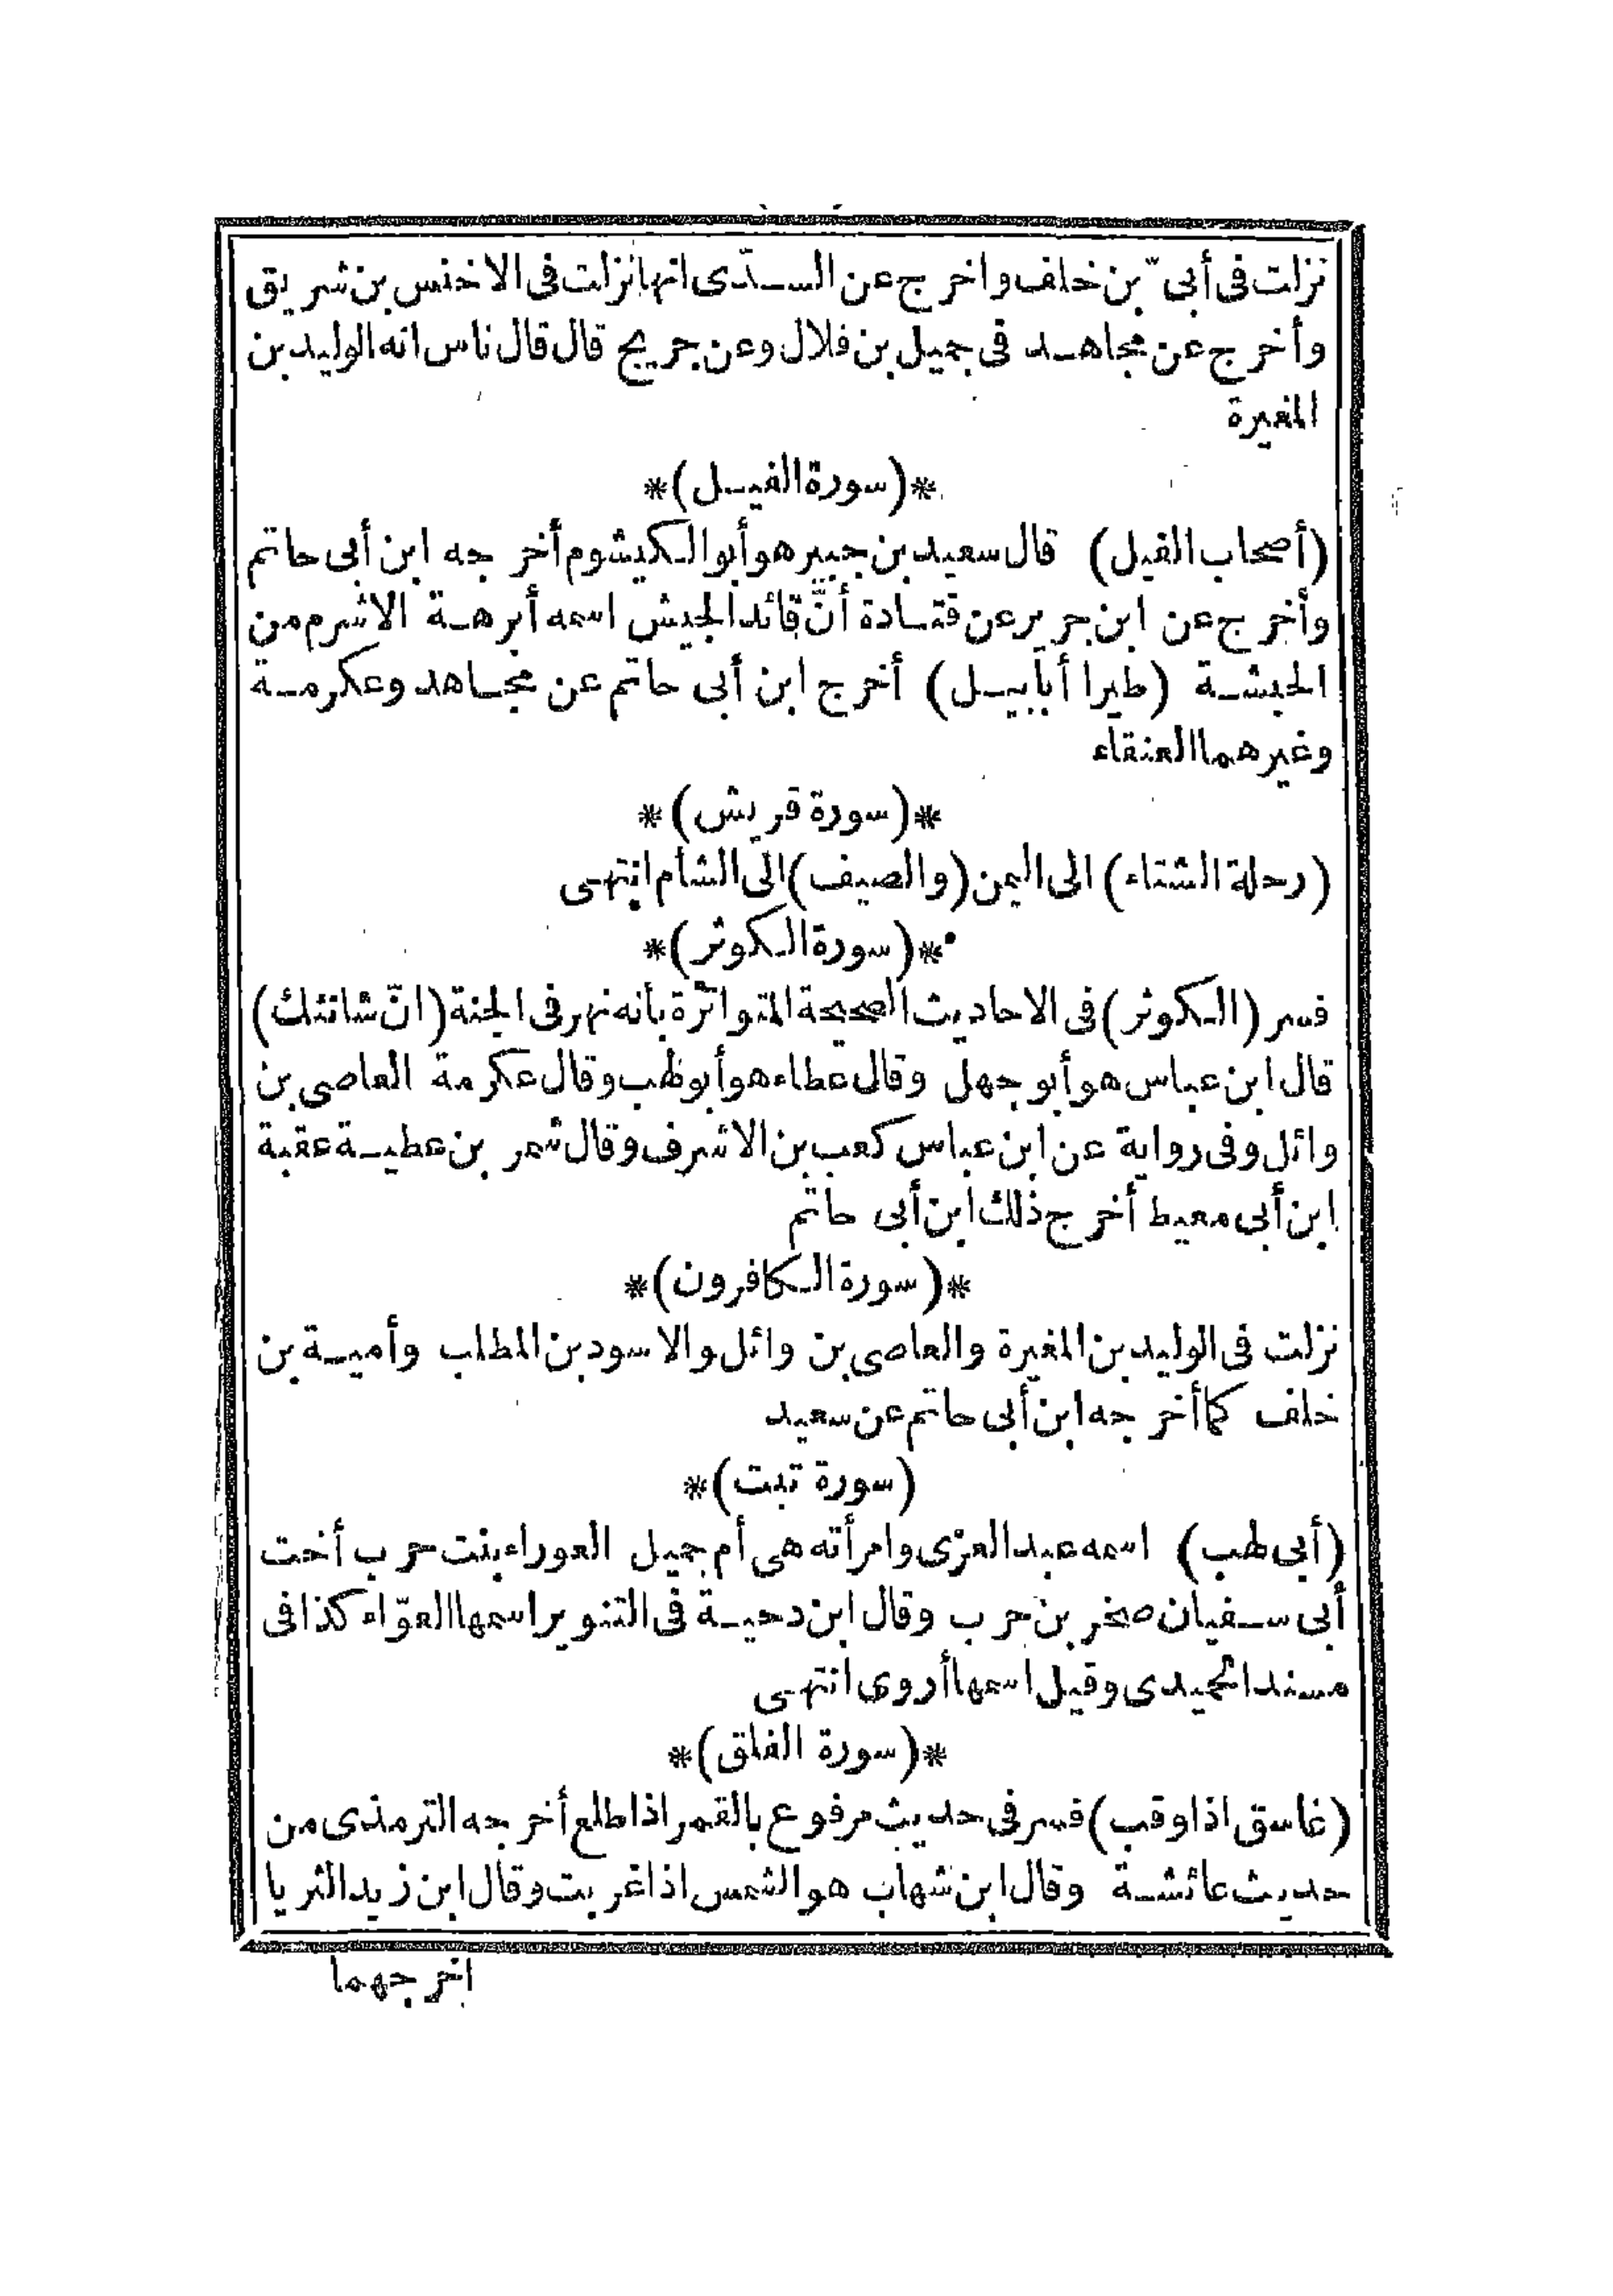 نزلت فى أبى ّ بن خلف واخرج عن السدّى انها نزلت فى الاخنس بن شريق
وأخرج عن مجاهد فى جميل بن فلال وعن جريج قال قال ناس انه الوليد بن
المغيرة
*(سورة الفيل)*
(أصحاب الفيل) قال سعيد بن جبير هو أبو الكيشوم أخرجه ابن أبى حاتم
وأخرج عن ابن جرير عن قتادة أنّ قائد الجيش اسمه أبرهة الاشرم من
الحبشة (طيرا أبابيل) أخرج ابن أبى حاتم عن مجاهد وعكرمة
وغيرهما العنقاء
*(سورة قريش)*
(رحلة الشتاء) الى اليمن (والصيف) الى الشأم انتهى
*(سورة الكوثر)*
فسر (الكوثر) فى الاحاديث الصحيحة المتواترة بأنه نهر فى الجنة (انّ شانئك)
قال ابن عباس هو أبو جهل وقال عطاء هو أبو لهب وقال عكرمة العاصى بن
وائل وفى رواية عن ابن عباس كعب بن الاشرف وقال شمر بن عطية عقبة
ابن أبى معيط أخرج ذلك ابن أبى حاتم
*(سورة الكافرون)*
نزلت فى الوليد بن المغيرة والعاصى بن وائل والاسود بن المطلب وأمية بن
خلف كما أخرجه ابن أبى حاتم عن سعيد
(سورة تبت)*
(أبى لهب) اسمه عبد العزى وامرأته هى أم جميل العوراء بنت حرب أخت
أبى سفيان صخر بن حرب وقال ابن دحية فى التنوير اسمها العوّاء كذا فى
مسند الحميدى وقيل اسمها أروى انتهى
*(سورة الفلق)*
(غاسق اذا وقب) فسر فى حديث مرفوع بالقمر اذا طلع أخرجه الترمذى من
حديث عائشة وقال ابن شهاب هو الشمس اذا غربت وقال ابن زيد الثريا
اخرجهما